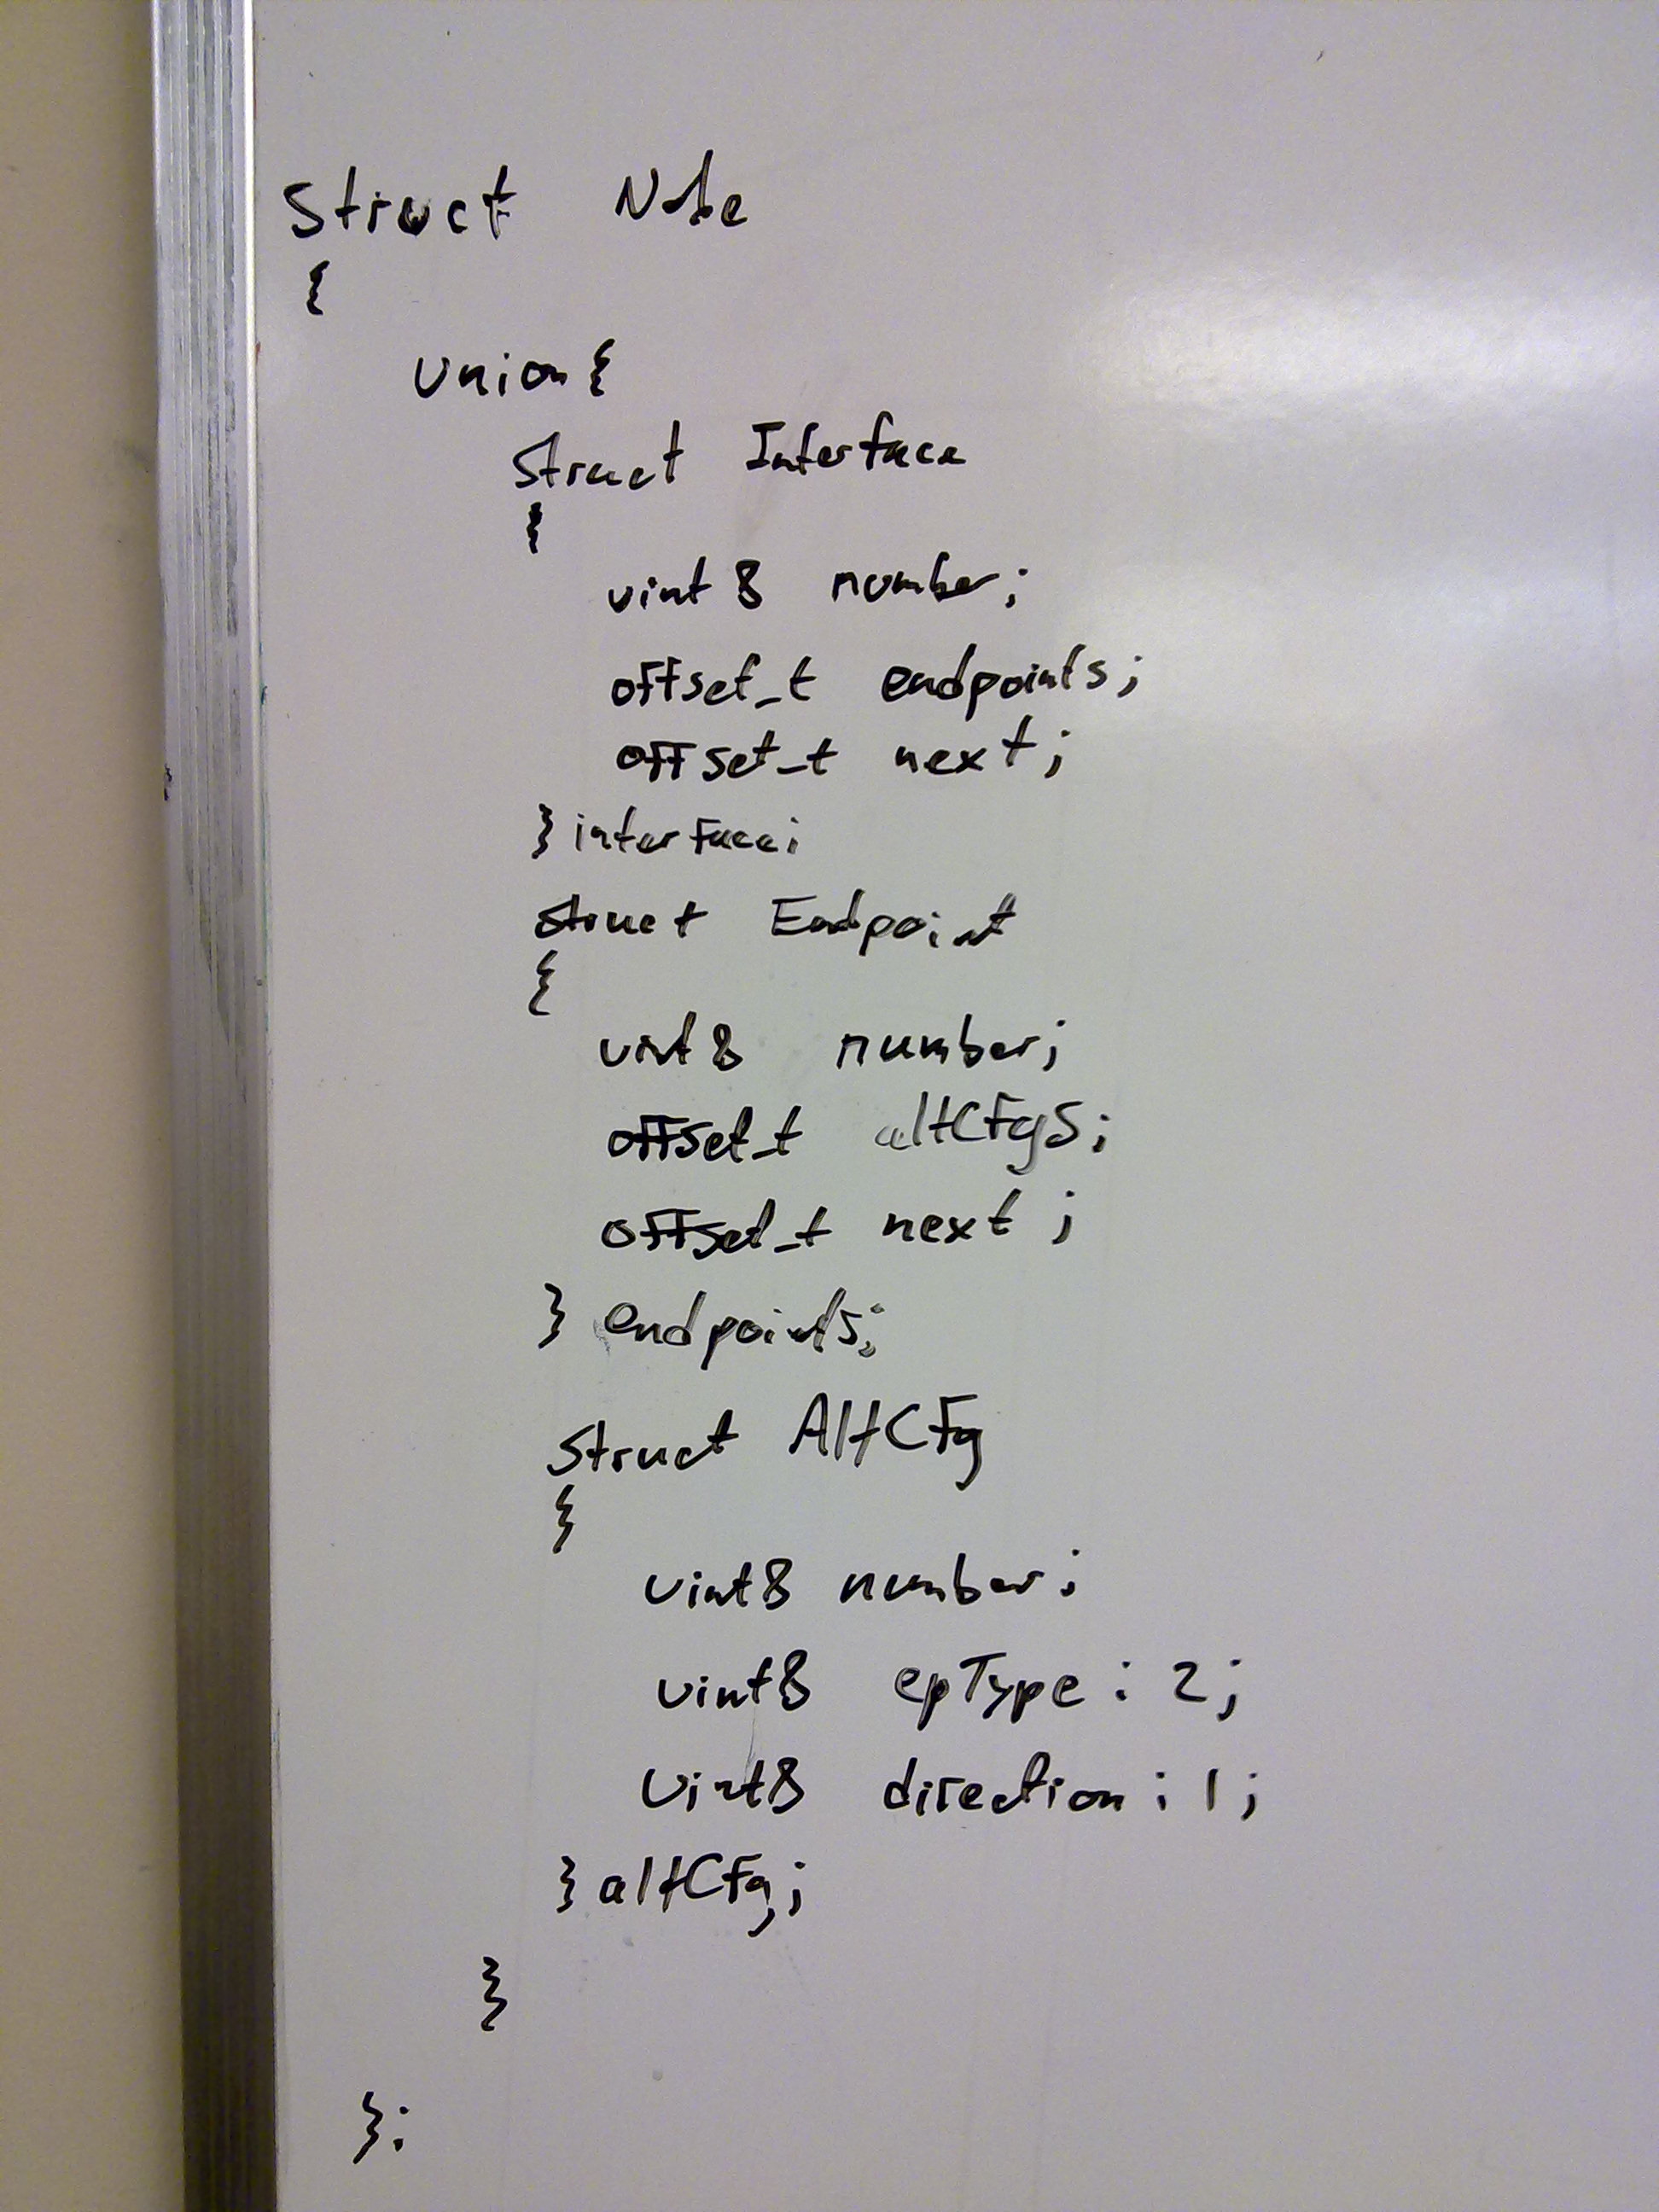 Struct Node
{
union {
struct Interface
{
uint8 number;
offset_t endpoints;
offset_t next;
} interface;
struct Endpoint
{
uint8 number;
offset_t altCfgs;
offset_t next;
} endpoints;
struct AltCfg
{
uint8 number;
uint8 epType : 2;
uint8 direction : 1;
} altCfg;
}
};